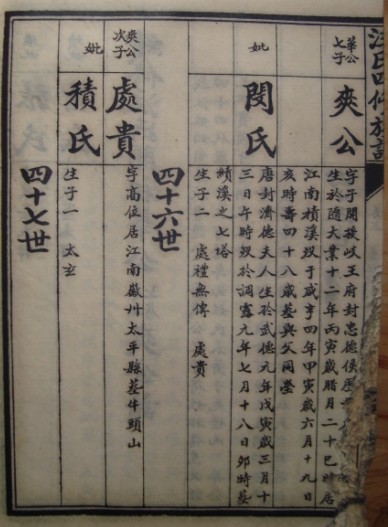 汪氏四修族譜
華公七子
爽公
字子開投岐王府封忠德侯歷
生於隨大業十二年丙寅歲腊月二十巳時居
江南積溪歿于咸亨四年甲寅歲六月十九日
亥時壽四十八歲墓與父同塋
妣
閔氏
唐封濟德夫人生於武德元年戊寅歲三月十
三日午時歿於調露元年七月十八日卯時墓
績溪之七塔
生子二 處禮無傳 處貴
四十六世
爽公次子
處貴
字高位居江南徽州太平縣墓牛頭山
妣
積氏
生子一 太玄
四十七世